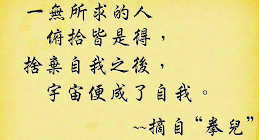 一無所求的人
俯拾皆是得，
捨棄自我之後，
宇宙便成了自我。
~~摘自“拳兒”